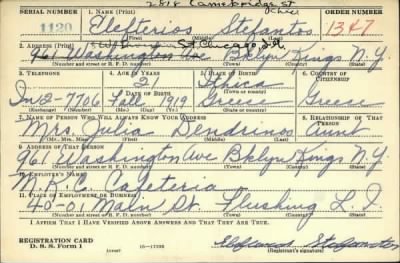 2818 Cambridge St
SERIAL NUMBER 1. NAME (Print) Chic. ORDER NUMBER
1120 Elefterios Stefantos 1347
(First) (Middle) (Last)
2. ADDRESS (Print) St Chicago, Ill
961 Washington Ave Bklyn Kings N.Y.
(Number and street or R. F. D. number) (Town) (County) (State)
3. TELEPHONE 4. AGE IN YEARS 5. PLACE OF BIRTH 6. COUNTRY OF CITIZENSHIP
21 Ithica
DATE OF BIRTH
In 2-7706 1919 Greece Greece
(Exchange) (Number) (Mo.) (Day) (Yr.) (State or country)
7. NAME OF PERSON WHO WILL ALWAYS KNOW YOUR ADDRESS 8. RELATIONSHIP OF THAT PERSON
Mrs. Julia Dendrinos Aunt
(Mr., Mrs., Miss) (First) (Middle) (Last)
9. ADDRESS OF THAT PERSON
961 Washington Ave Bklyn Kings N.Y.
(Number and street or R. F. D. number) (Town) (County) (State)
10. EMPLOYER'S NAME
M.K.C. Cafeteria
11. PLACE OF EMPLOYMENT OR BUSINESS
40-01 Main St. Flushing L.I
(Number and street or R. F. D. number) (Town) (County) (State)
I AFFIRM THAT I HAVE VERIFIED ABOVE ANSWERS AND THAT THEY ARE TRUE.
REGISTRATION CARD
D. S. S. Form 1 (over) 16-17105
(Registrant's signature)